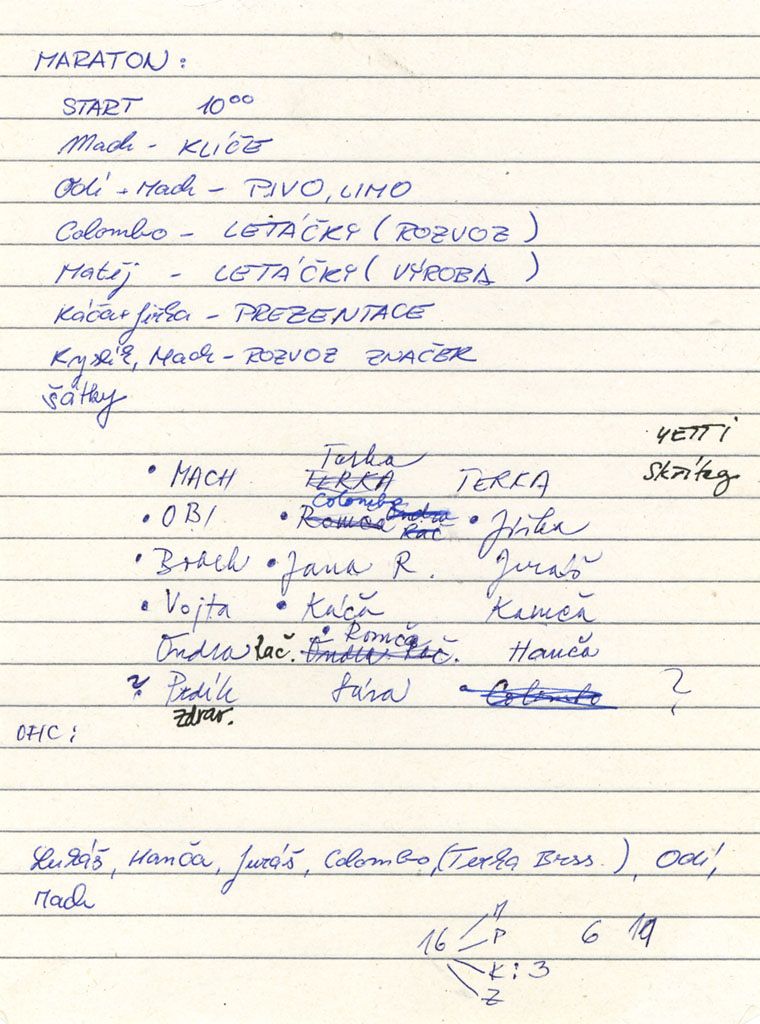 MARATON:
START 10⁰⁰
Mach - KLÍČE
Odi + Mach - PIVO, LIMO
Colombo - LETÁČKY (ROZVOZ)
Matěj - LETÁČKY (VÝROBA)
Káča + Jirka - PREZENTACE
Mach - ROZVOZ ZNAČEK
šátky
YETTI
Skřítag
Terka
• MACH TERKA TERKA
Colombo Ondra
• OBI • Romča Rač • Jirka
• Jana R. Juráš
• Vojta • Káča Kamča
• Romča
Ondra Rač. Ondra Rač. Hanča
? Prdík Sára • Colombo ?
zdrav.
OFIC:
Lukáš, Hanča, Juráš, Colombo, (Terka Brss.), Odi,
Mach
16 M P K: 3 Z 6 19